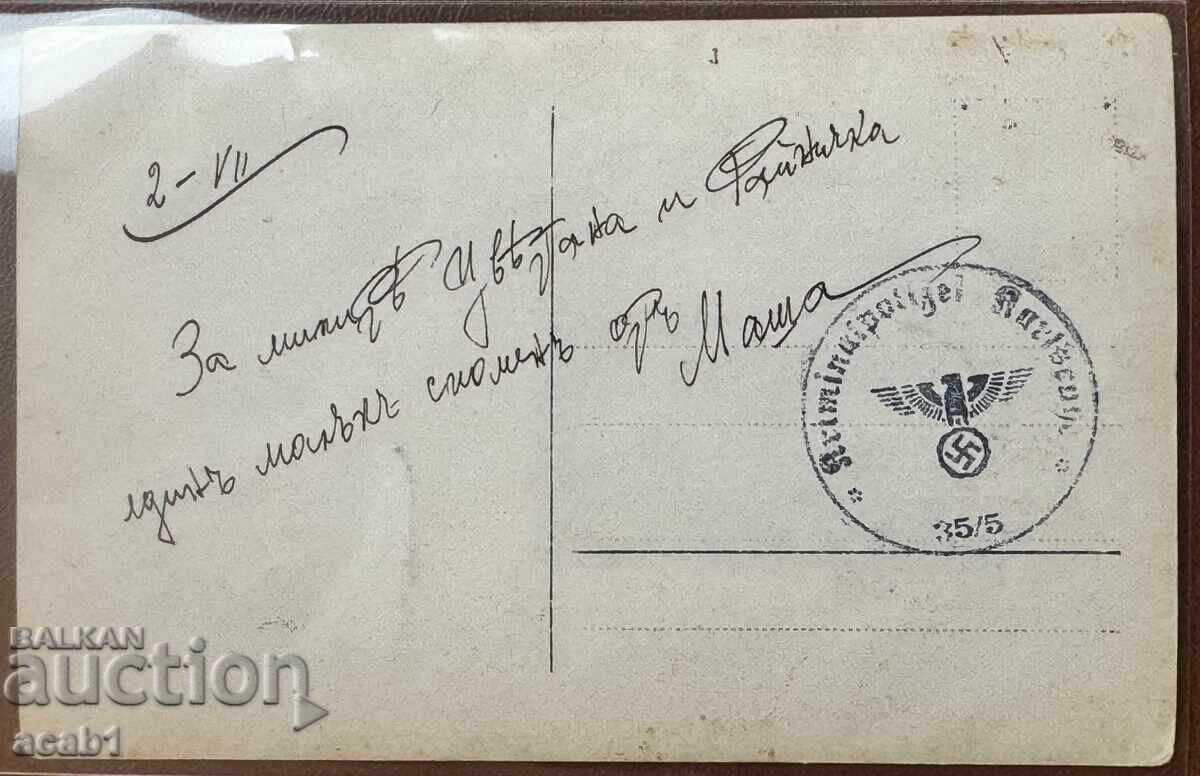 2-VII
За милитѣ Цвѣтана и Райничка
единъ малъкъ споменъ отъ Маша
Kriminalpolizei Karlsruhe
35/5
BALKAN
auction
acab1